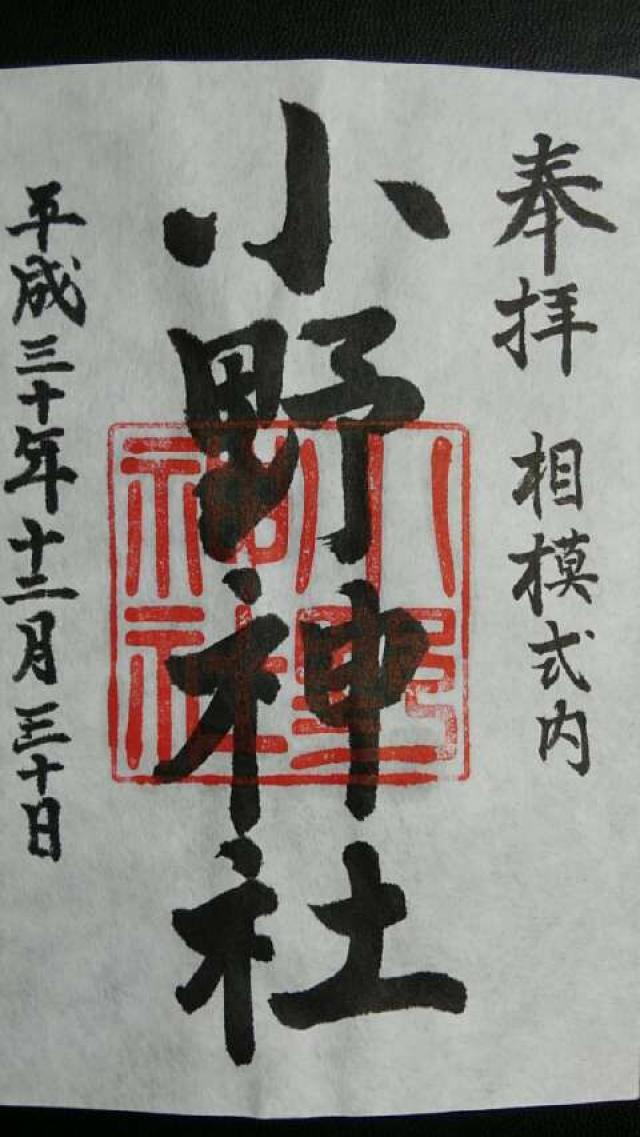 奉拝 相模式内
小野神社
小野神社
平成三十年十二月三十日